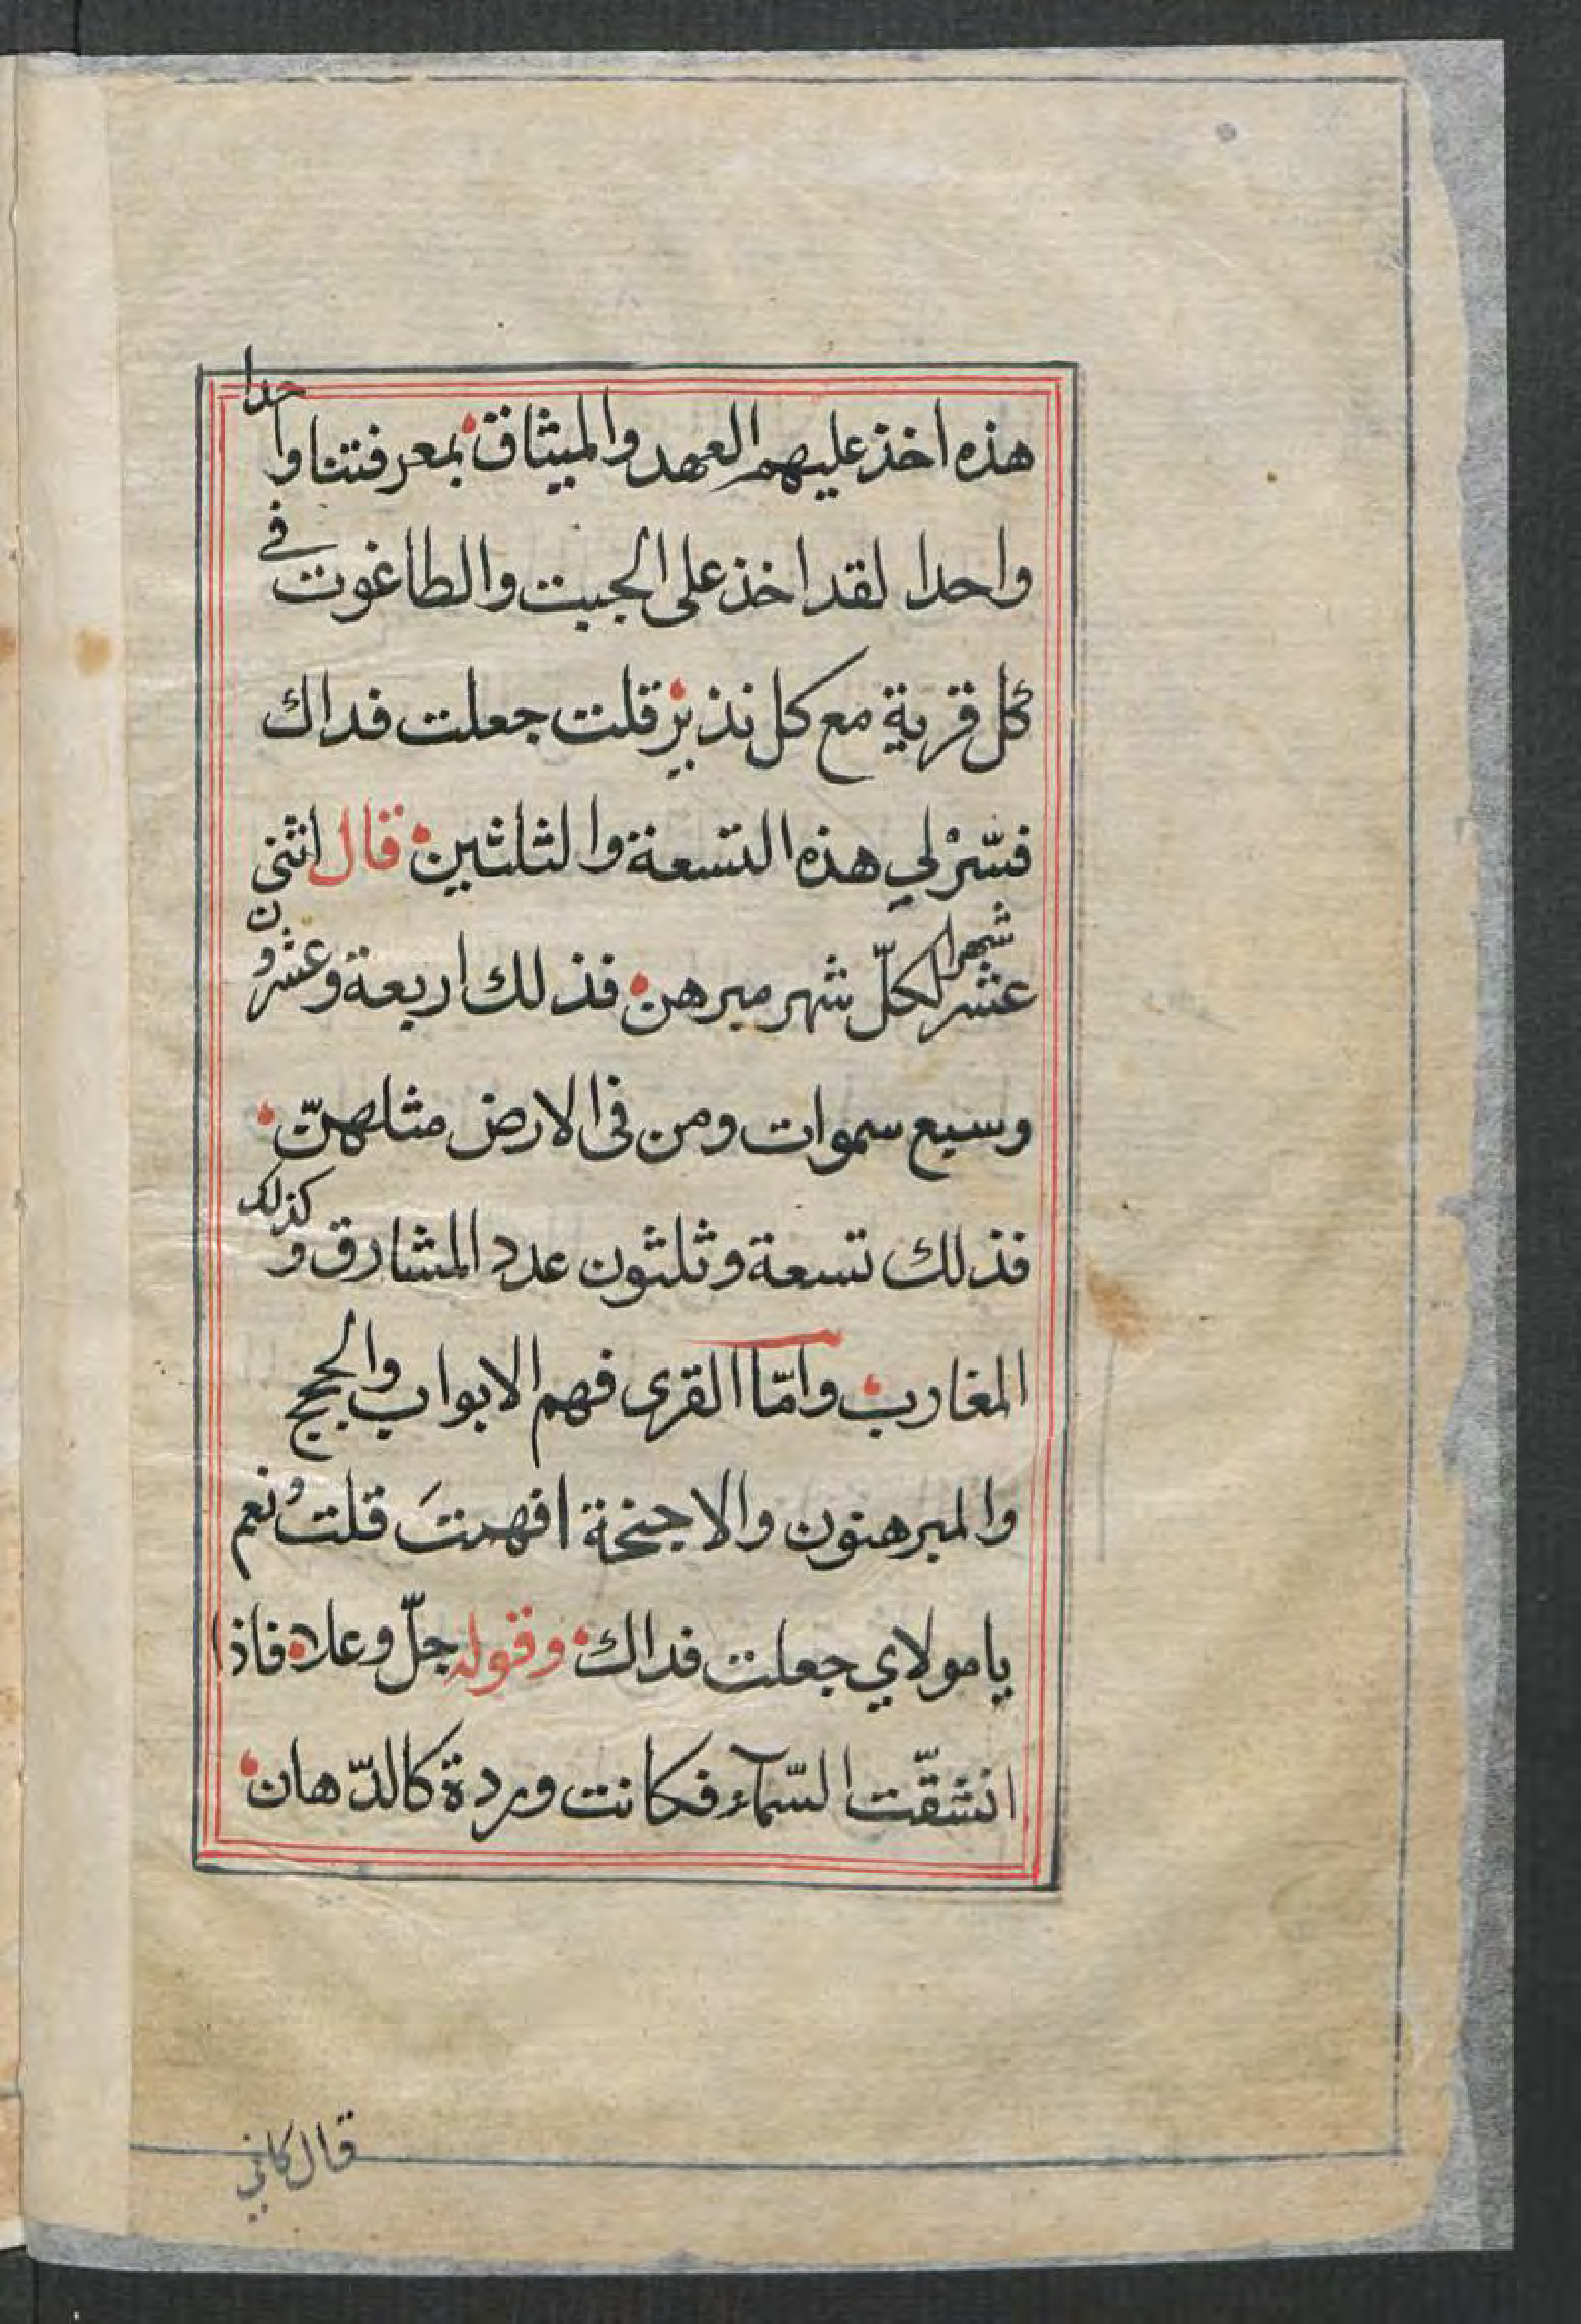 هذه اخذ عليهم العهد والميثاق بمعرفتنا واحدا
واحدا لقد اخذ على الجبت والطاغوت في
كل قرية مع كل نذير قلت جعلت فداك
فسّرْ لي هذه التسعة والثلثين قال اثنى
عشر شهرا لكلّ شهر مبرهن فذلك اربعة وعشرون
وسبع سموات ومن فى الارض مثلهنّ
فذلك تسعة وثلثون عدد المشارق وكذلك
المغارب وامّا القرى فهم الابواب والحجج
والمبرهنون والاجنحة افهمتَ قلتُ نعم
يا مولاي جعلت فداك وقوله جلّ وعلا فاذا
انشقّت السّمآء فكانت وردة كالدّهان
قال كاني